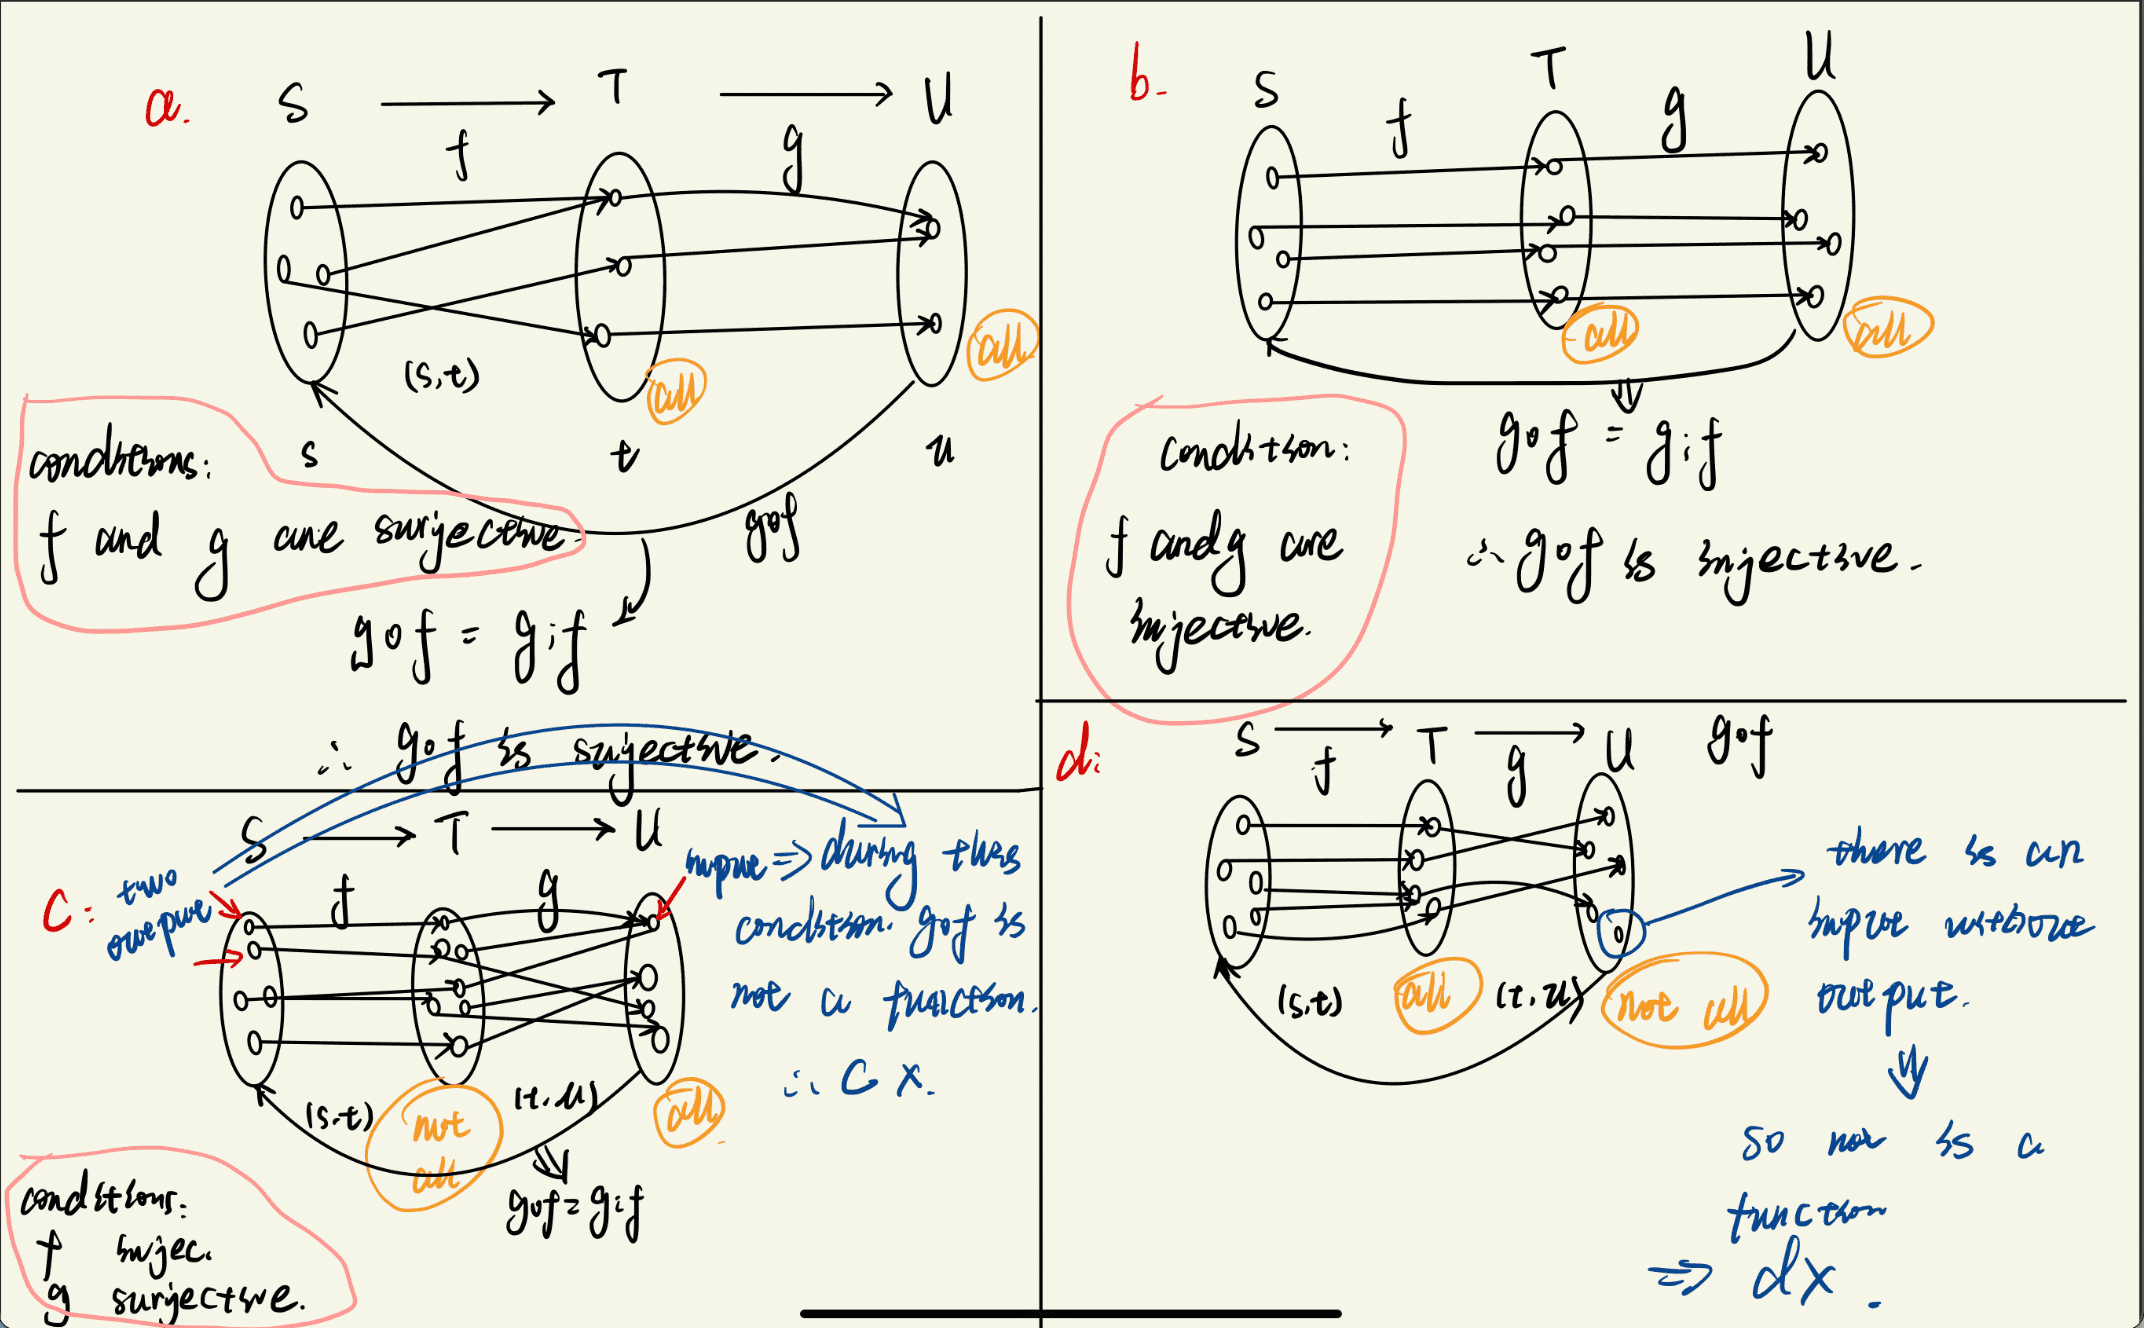 a. S T U
f g
all
(s,t) all
conditions: s t u
f and g are surjective.
gof
gof = g;f
∴ gof is surjective.
b. S T U
f g
all all
condition:
f and g are
injective.
gof = g;f
∴ gof is injective.
S T U
c: two
output
f g
input ⇒ during this
condition. gof is
not a function.
∴ C x.
(s,t) not
all
(t,u) all
gof = g;f
conditions:
f injec.
g surjective.
d: S T U gof
f g
there is an
input without
output.
(s,t) all (t,u) not all
so not is a
function
⇒ dx.